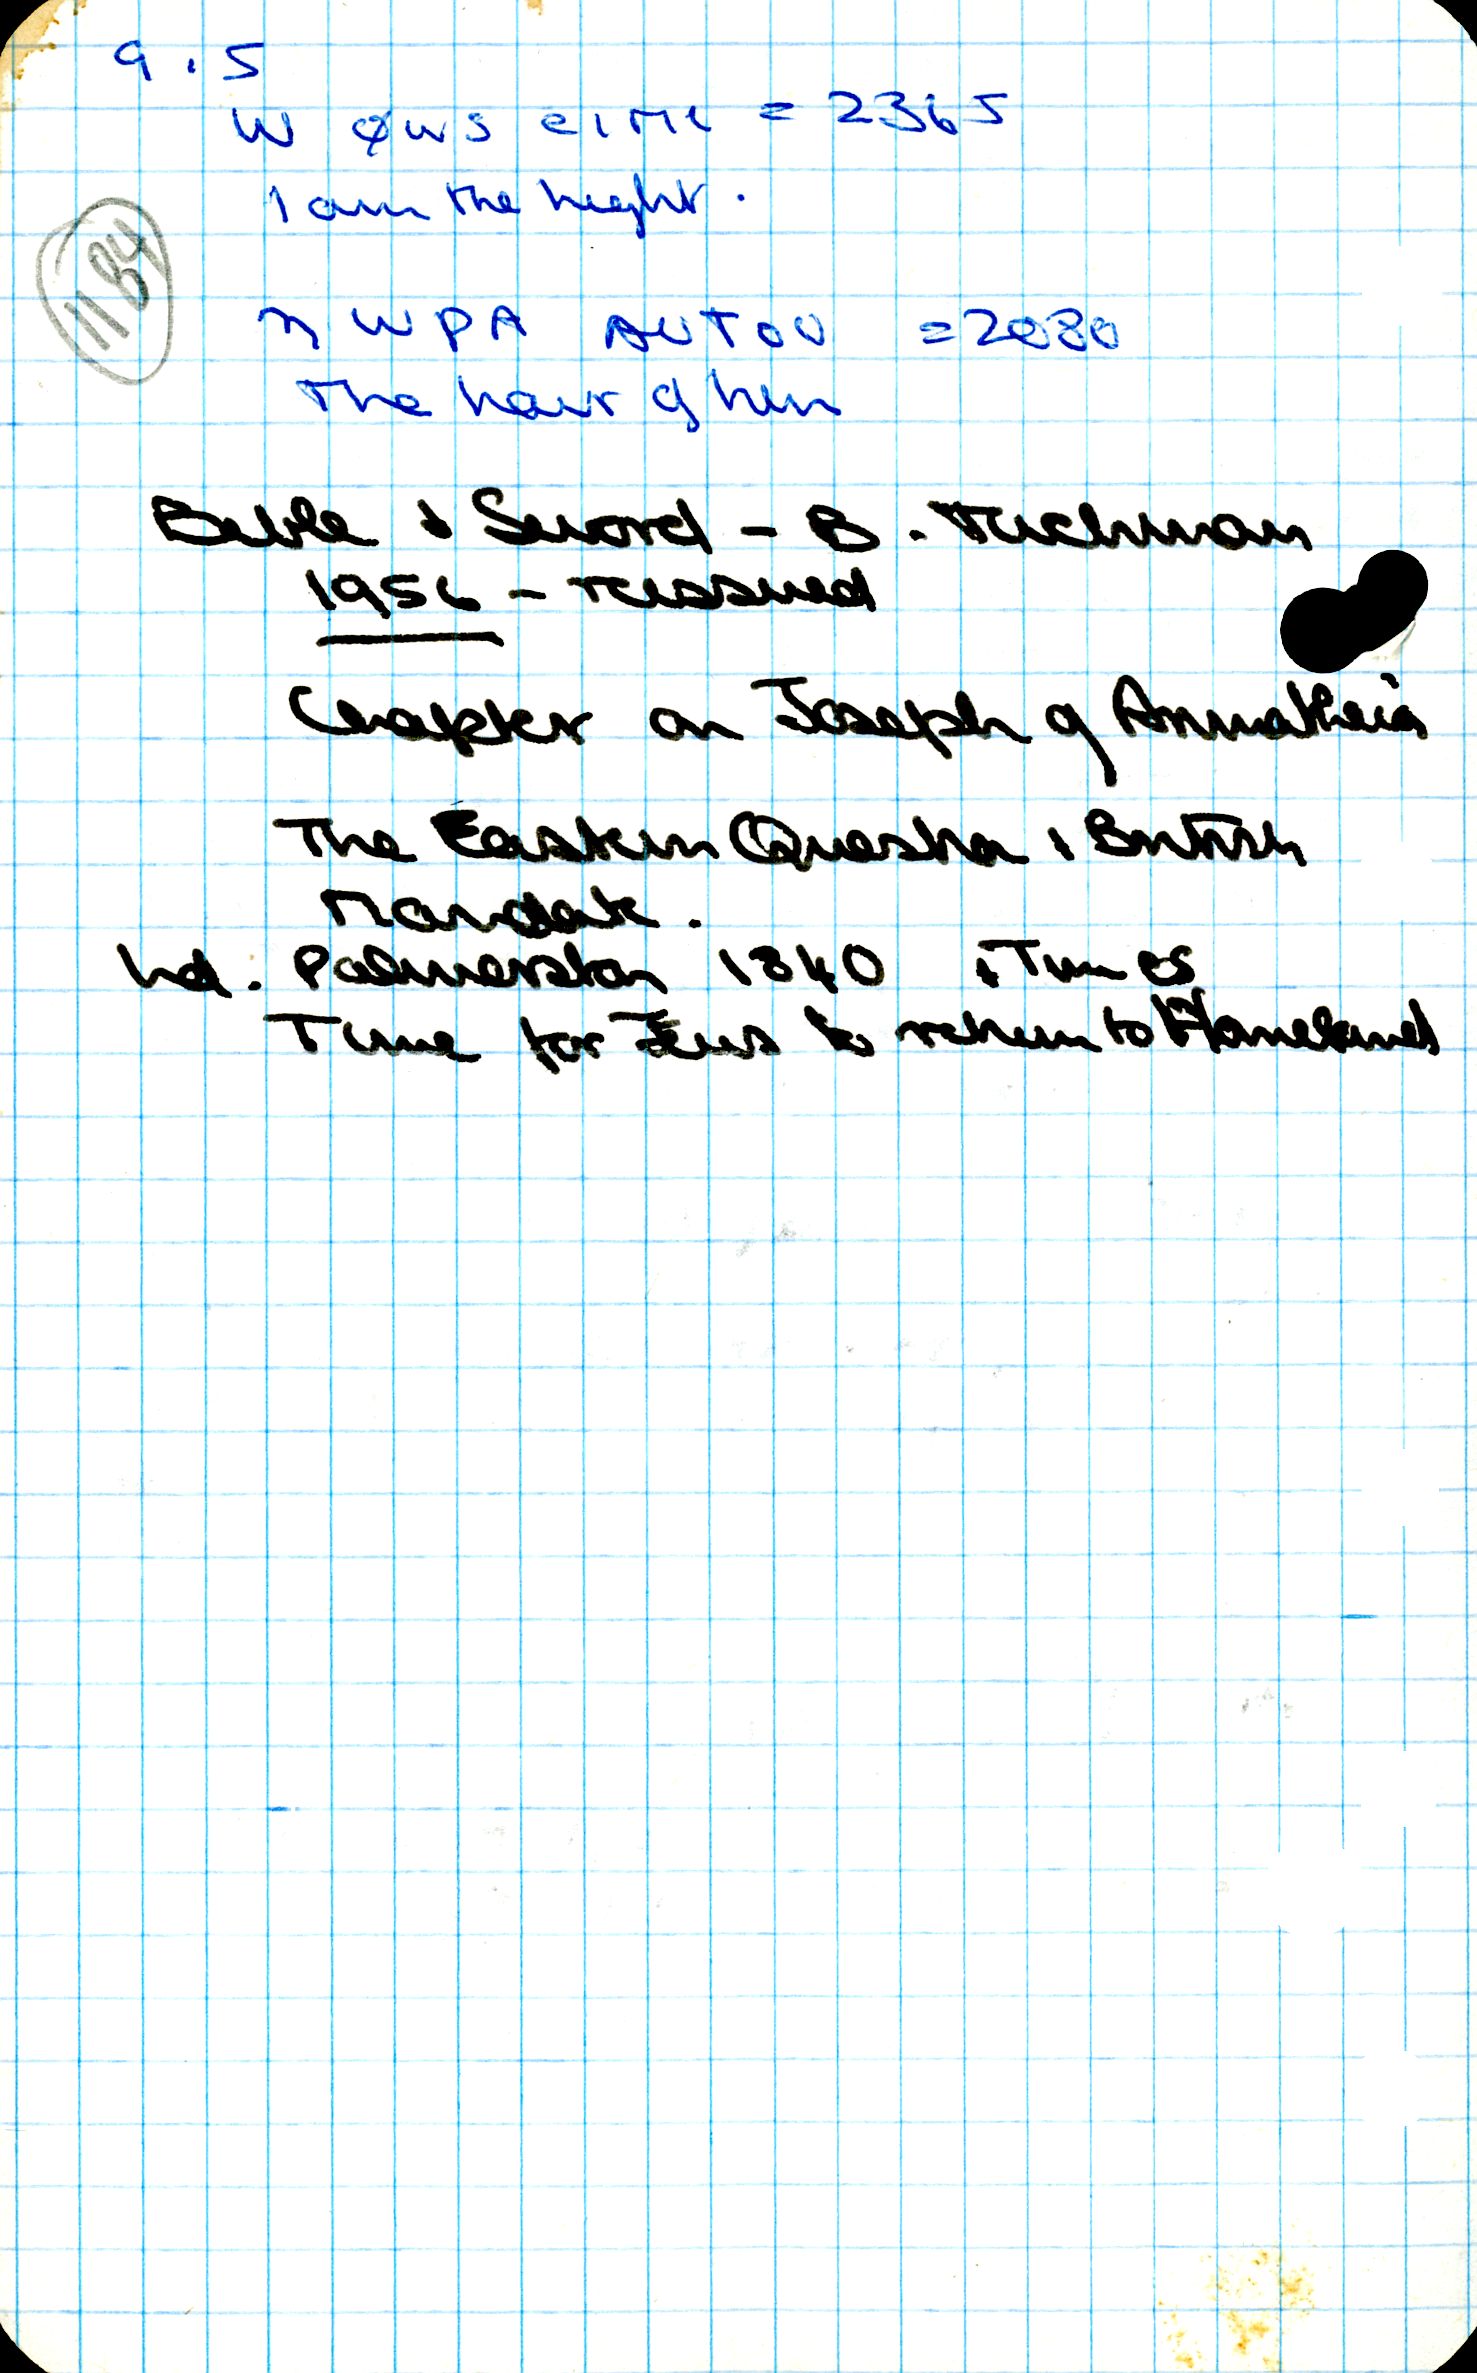 9.5
W φws eimi = 2365
I am the height.
11B4
η WPA AUTOU =2080
The hour of him
Bible & Sword - B. Tuchman
1956 - reissued
Chapter on Joseph of Arimatheia
The Eastern Question & British
Mandate.
Ld. Palmerston 1840 & Times
Time for Jews to return to Homeland